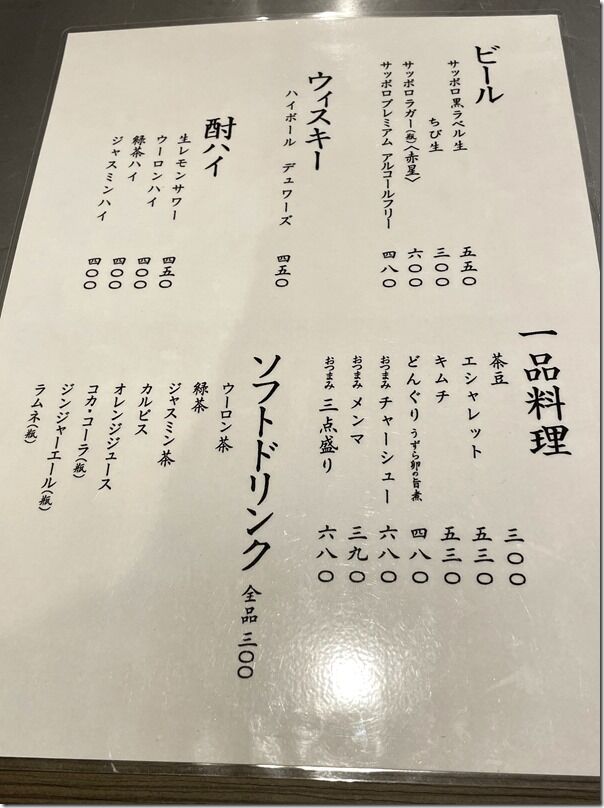 ビール
サッポロ黒ラベル生 五五〇
ちび生 三〇〇
サッポロラガー(瓶)〈赤星〉 六〇〇
サッポロプレミアム アルコールフリー 四八〇
ウィスキー
ハイボール デュワーズ 四五〇
酎ハイ
生レモンサワー 四五〇
ウーロンハイ 四〇〇
緑茶ハイ 四〇〇
ジャスミンハイ 四〇〇
一品料理
茶豆 三〇〇
エシャレット 五三〇
キムチ 五三〇
どんぐり うずら卵の旨煮 四八〇
おつまみ チャーシュー 六八〇
おつまみ メンマ 三九〇
おつまみ 三点盛り 六八〇
ソフトドリンク 全品 三〇〇
ウーロン茶
緑茶
ジャスミン茶
カルピス
オレンジジュース
コカ・コーラ(瓶)
ジンジャーエール(瓶)
ラムネ(瓶)